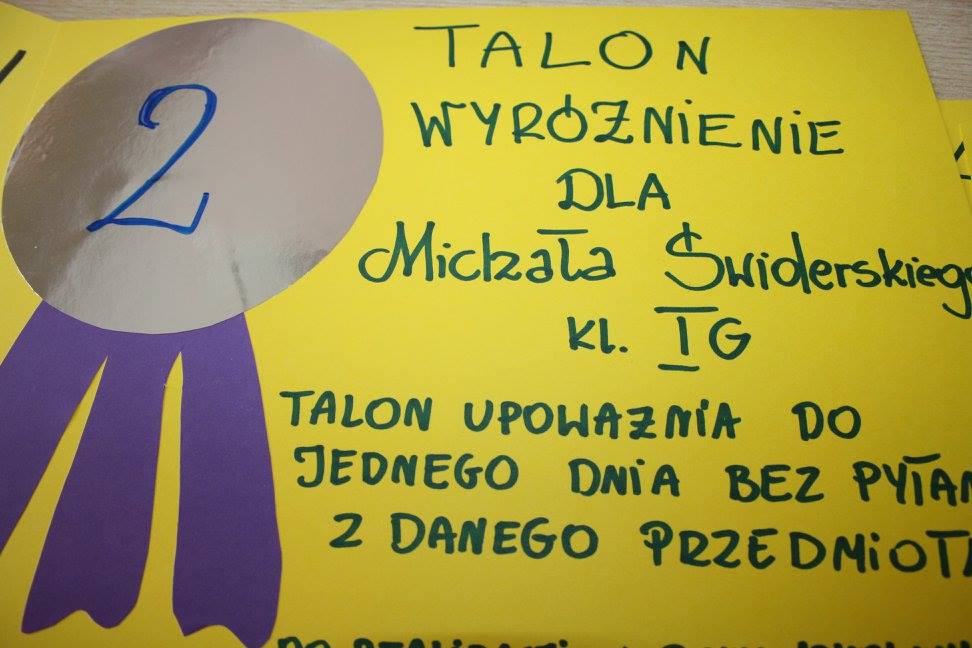 2
TALON
WYRÓŻNIENIE
DLA
Michała Świderskieg
kl. I G
TALON UPOWAŻNIA DO
JEDNEGO DNIA BEZ PYTAN
Z DANEGO PRZEDMIOTA